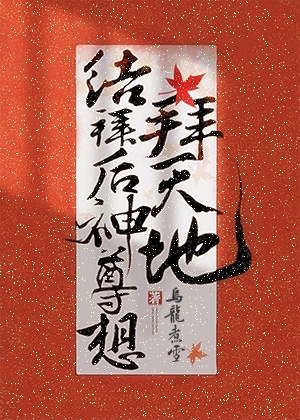 拜天地
结拜后神尊想
乌龍煮雪
著